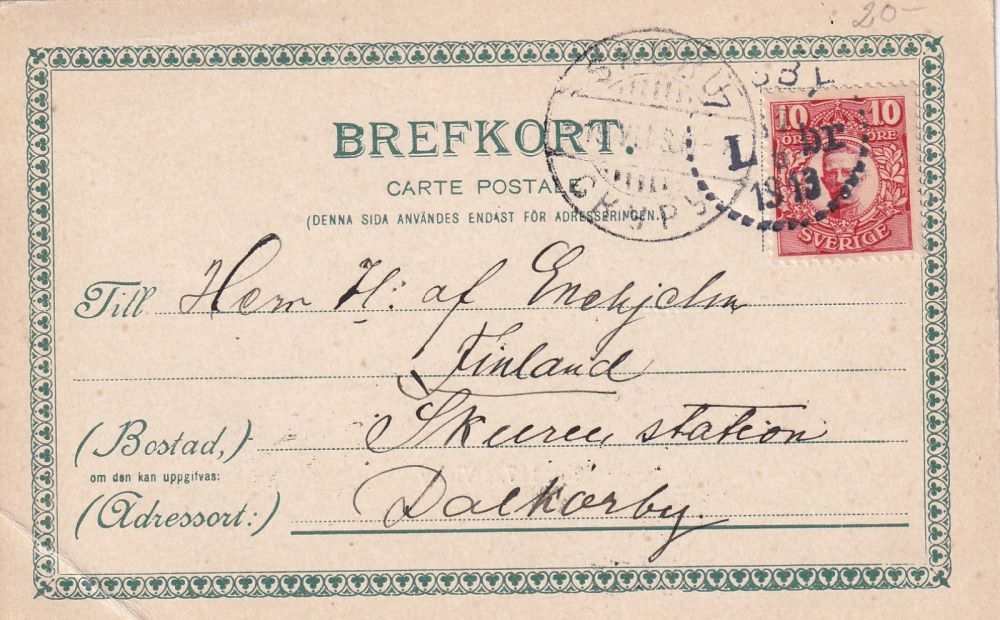 20-
BREFKORT.
CARTE POSTALE
(DENNA SIDA ANVÄNDES ENDAST FÖR ADRESSERINGEN.)
10 10
ÖRE ÖRE
SVERIGE
L br
1913
Till Herr H: af Enehjelm
Finland
(Bostad,) Skuru station
om den kan uppgifvas:
(Adressort:) Dalkarby.